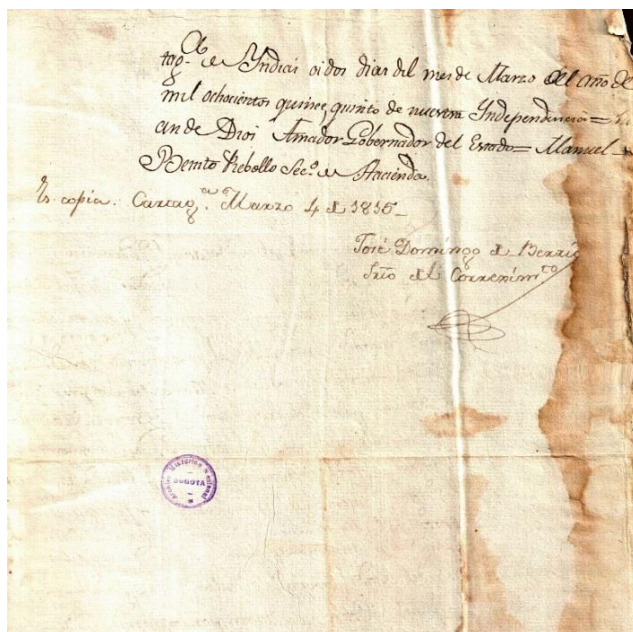 tag.ª de Yndias a dos dias del mes de Marzo del año de
mil ochocientos quince, quinto de nuestra Independencia =
an de Dios Amador Gobernador del Estado = Manuel
Benito Rebollo Sec.º de Hacienda.
Es copia. Cartag.ª Marzo 4 de 1815_
José Domingo de Berrío
Srio del Corregim.to
Archivo Histórico Nacional
BOGOTA